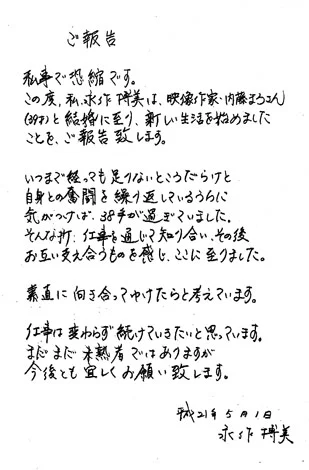 ご報告
私事で恐縮です。
この度、私、永作博美は、映像作家・内藤まろさん
(39才)と結婚に至り、新しい生活を始めました
ことを、ご報告致します。
いつまで経っても足りないところだらけと
自身との奮闘を繰り返しているうちに
気がつけば、38年が過ぎていました。
そんな折、仕事を通じて知り合い、その後
お互い支え合うものを感じ、ここに至りました。
素直に向き合ってゆけたらと考えています。
仕事は変わらず続けていきたいと思っています。
まだまだ未熟者ではありますが
今後とも宜しくお願い致します。
平成21年5月1日
永作博美